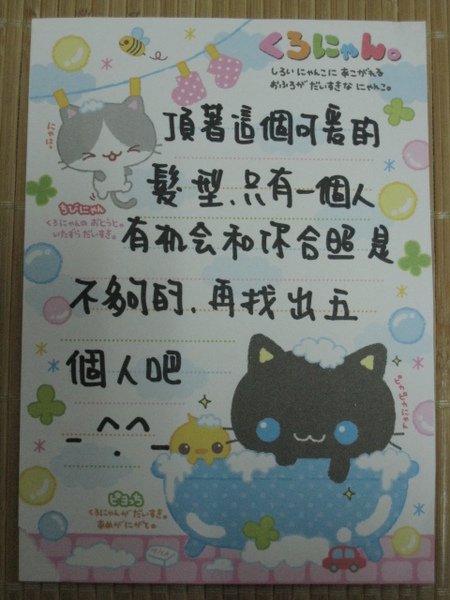 くろにゃん。
しろい にゃんこに あこがれる
おふろが だいすきな にゃんこ。
頂著這個可愛的
髮型,只有一個人
有机会和你合照是
不夠的,再找出五
個人吧
_^^_
ちびにゃん
くろにゃんの おとうと。
いたずら だいすき。
ピヨっち
くろにゃんが だいすき。
あめが にがて。